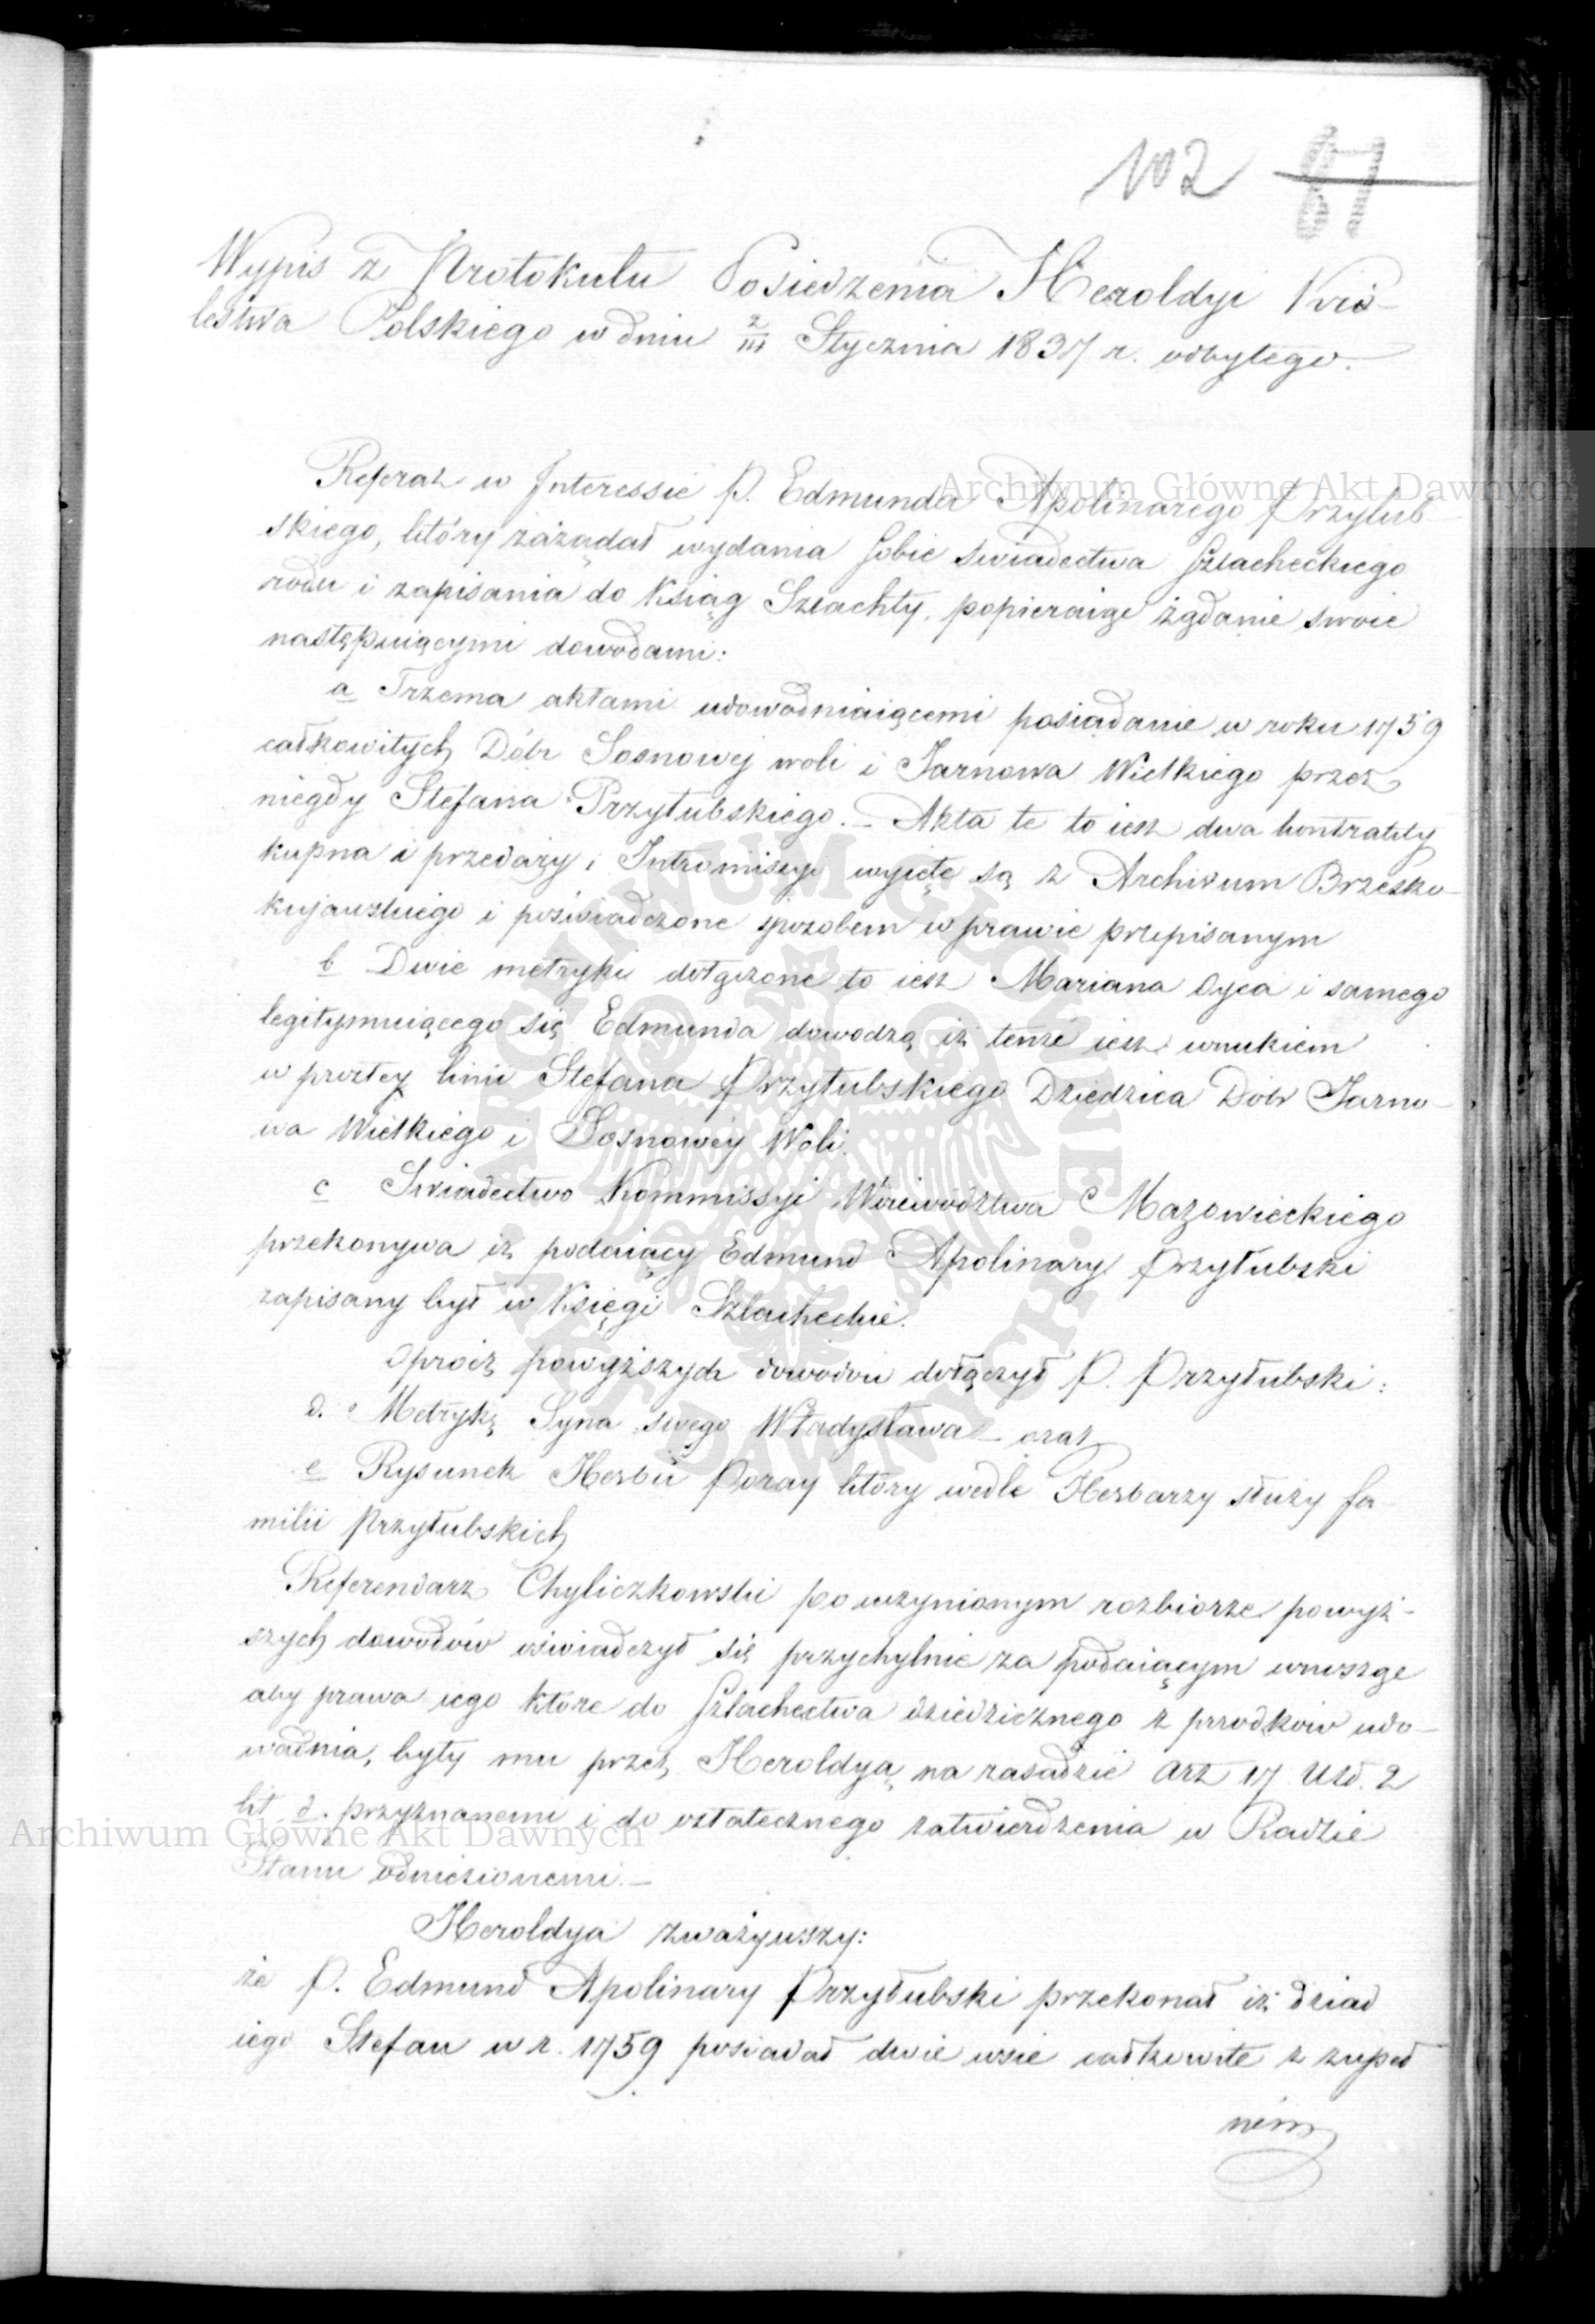 102 67
Wypis z Protokułu Posiedzenia Heroldyi Kró-
lestwa Polskiego w dniu Stycznia 1837 r. odbytego.
Referat w Interessie P. Edmunda Apolinarego Przyłub-
skiego, który zażądał wydania sobie swiadectwa szlacheckiego
rodu i zapisania do Ksiąg Szlachty, popieraiąc żądanie swoie
następuiącymi dowodami:
a Trzema aktami udowodniaiącemi posiadanie w roku 1759
całkowitych Dóbr Sosnowej woli i Jarnowa Wielkiego przez
niegdy Stefana Przyłubskiego. – Akta te to iest dwa kontrakty
kupna i przedaży i Intromissyi wyięte są z Archivum Brzesko-
kujawskiego i poświadczone sposobem w prawie przepisanym
b Dwie metryki dołączone to iest Mariana Oyca i samego
legitymuiącego się Edmunda dowodzą iż tenże iest wnukiem
w prostey linii Stefana Przyłubskiego Dziedzica Dóbr Jarno-
wa Wielkiego i Sosnowey Woli.
c Swiadectwo Kommissyi Woiewództwa Mazowieckiego
przekonywa iż podaiący Edmund Apolinary Przyłubski
zapisany był w Księgi Szlacheckie.
Oprócz powyższych dowodów dołączył P. Przyłubski:
d. Metrykę Syna swego Władysława – oraz
e Rysunek Herbu Poray który wedle Herbarzy służy fa-
milii Przyłubskich
Referendarz Chyliczkowski po uczynionym rozbiorze powyż-
szych dowodów oświadczył się przychylnie za podaiącym wnosząc
aby prawa iego które do szlachectwa dziedzicznego z przodków udo-
wadnia, były mu przez Heroldyą na zasadzie Art 17 Ust. 2
lit d. przyznanemi i do ostatecznego zatwierdzenia w Radzie
Stanu odniesionemi. –
Heroldya zważywszy:
że P. Edmund Apolinary Przyłubski przekonał iż dziad
iego Stefan w r. 1759 posiadał dwie wsie całkowite z zupeł
nem
Archiwum Główne Akt Dawnych
Archiwum Główne Akt Dawnych
ARCHIWUM GŁÓWNE AKT DAWNYCH